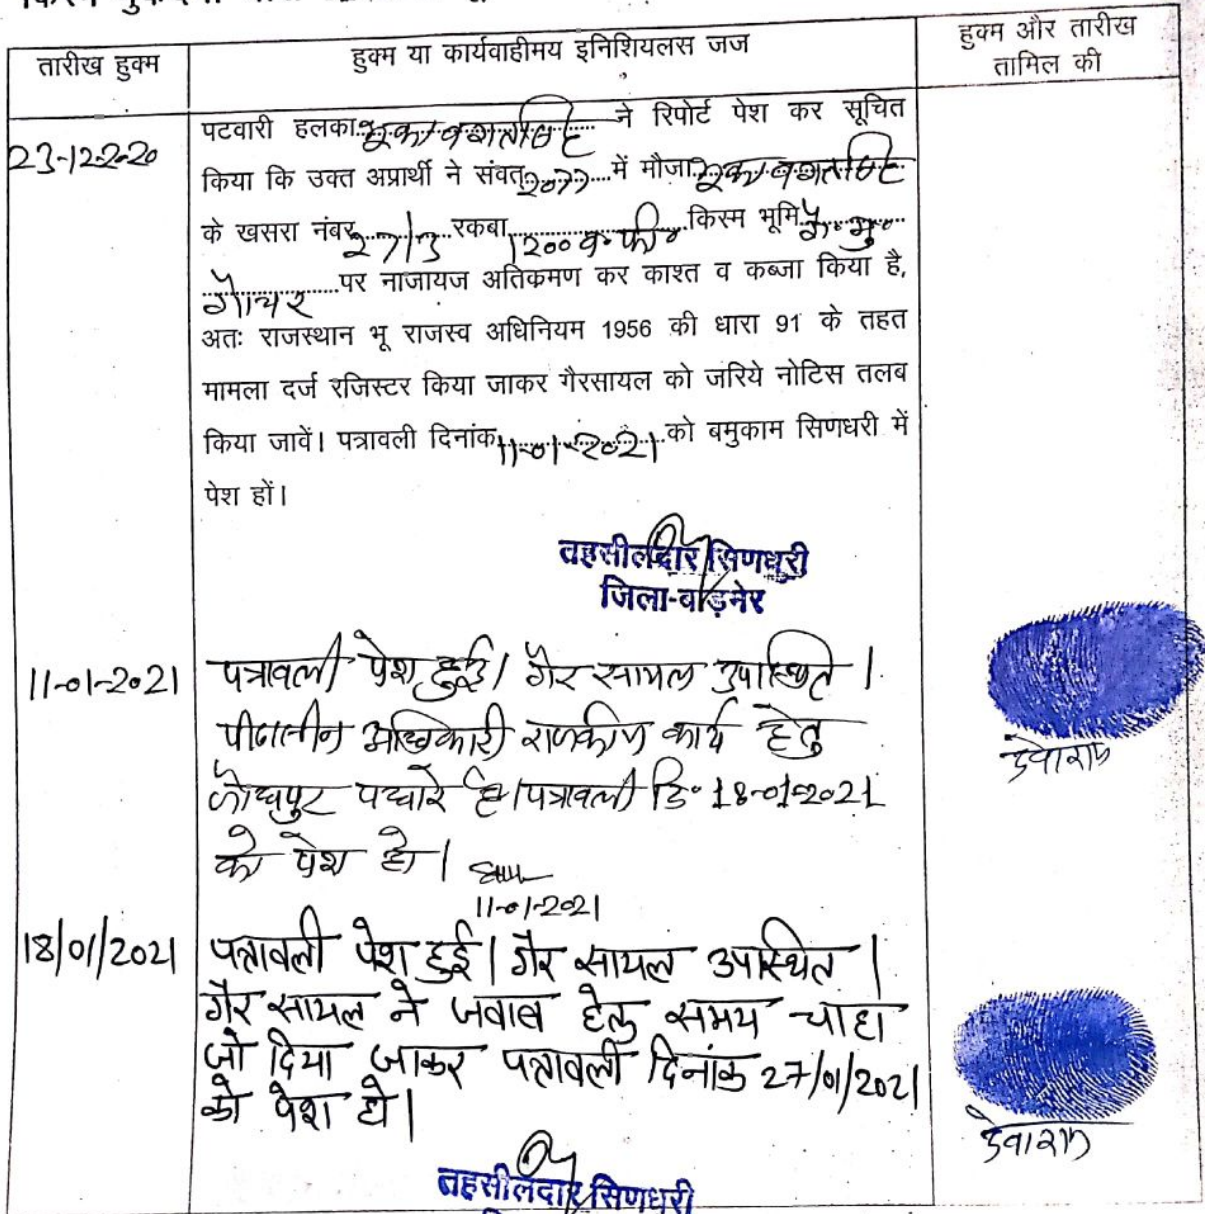 तारीख हुक्म
हुक्म या कार्यवाहीमय इनिशियलस जज
हुक्म और तारीख
तामिल की
23-12-2020
पटवारी हलका ने रिपोर्ट पेश कर सूचित
किया कि उक्त अप्रार्थी ने संवत् 2077 में मौजा
के खसरा नंबर 27/3 रकबा 1200 व॰ फी॰ किस्म भूमि गै॰ मु॰
गोचर पर नाजायज अतिक्रमण कर काश्त व कब्जा किया है,
अतः राजस्थान भू राजस्व अधिनियम 1956 की धारा 91 के तहत
मामला दर्ज रजिस्टर किया जाकर गैरसायल को जरिये नोटिस तलब
किया जावें। पत्रावली दिनांक 11-01-2021 को बमुकाम सिणधरी में
पेश हों।
तहसीलदार सिणधरी
जिला-बाड़मेर
11-01-2021
पत्रावली पेश हुई। गैर सायल उपस्थित।
पीठासीन अधिकारी राजकीय कार्य हेतु
जोधपुर पधारे है। पत्रावली दि॰ 18-01-2021
को पेश हो।
11-01-2021
देवाराम
18/01/2021
पत्रावली पेश हुई। गैर सायल उपस्थित।
गैर सायल ने जवाब हेतु समय चाहा
जो दिया जाकर पत्रावली दिनांक 27/01/2021
को पेश हो।
देवाराम
तहसीलदार सिणधरी